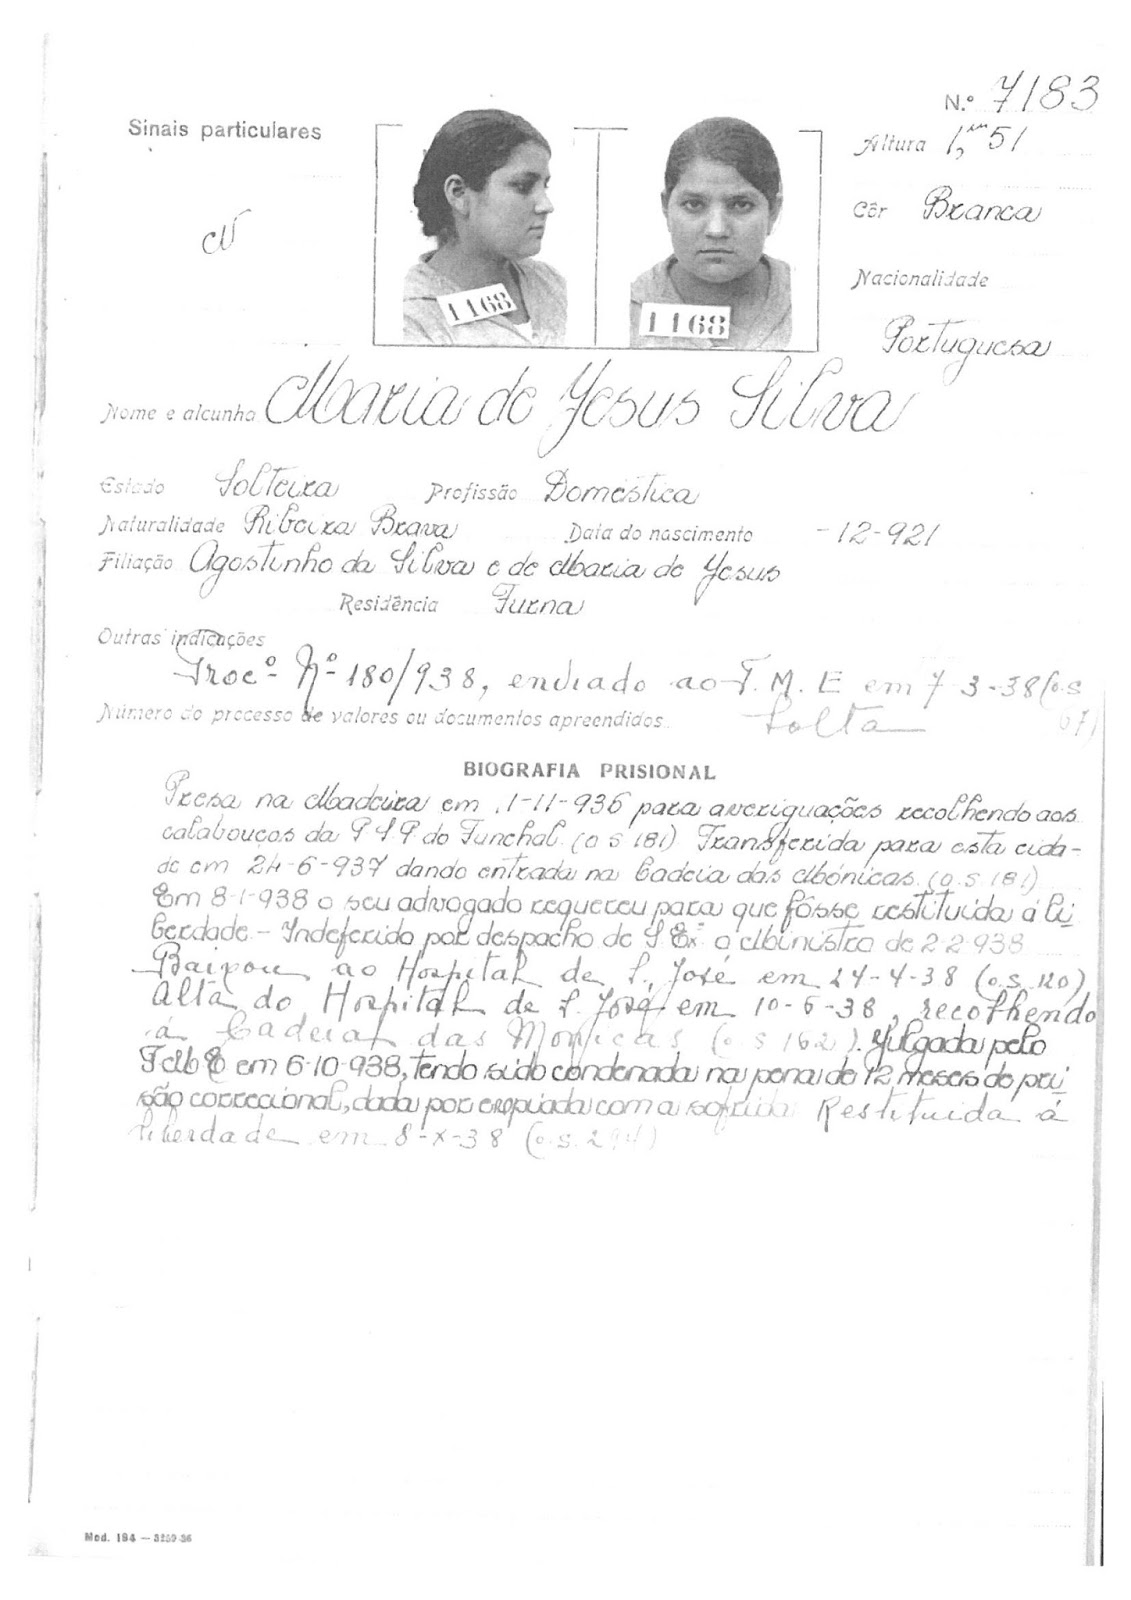 N.º 7183
Sinais particulares
Altura 1,m51
Côr Branca
Nacionalidade
Portuguesa
1168
1168
Nome e alcunha Maria de Jesus Silva
Estado Solteira Profissão Doméstica
Naturalidade Ribeira Brava Data do nascimento -12-921
Filiação Agostinho da Silva e de Maria de Jesus
Residência Furna
Outras indicações
Proc.º N.º 180/938, enviado ao T. M. E em 7-3-38 (o.s
67)
Número do processo de valores ou documentos apreendidos Solta
BIOGRAFIA PRISIONAL
Presa na Madeira em 1-11-936 para averiguações recolhendo aos
calabouços da P S P do Funchal. (o s 181) Transferida para esta cida-
de em 24-6-937 dando entrada na Cadeia das Mónicas. (o.s 181)
Em 8-1-938 o seu advogado requereu para que fôsse restituida á li
berdade - Indeferido por despacho de S. Exª o Ministro de 2-2-938
Baixou ao Hospital de S. José em 24-4-38 (o.s. 120)
Alta do Hospital de S. José em 10-6-38, recolhendo
á Cadeia das Monicas (o.s 162). Julgada pelo
T M E em 6-10-938, tendo sido condenada na pena de 12 meses de pri
são correcional, dada por expiada com a sofrida Restituida á
liberdade em 8-X-38 (o.s. 294)
Mod. 194 — 3259-36